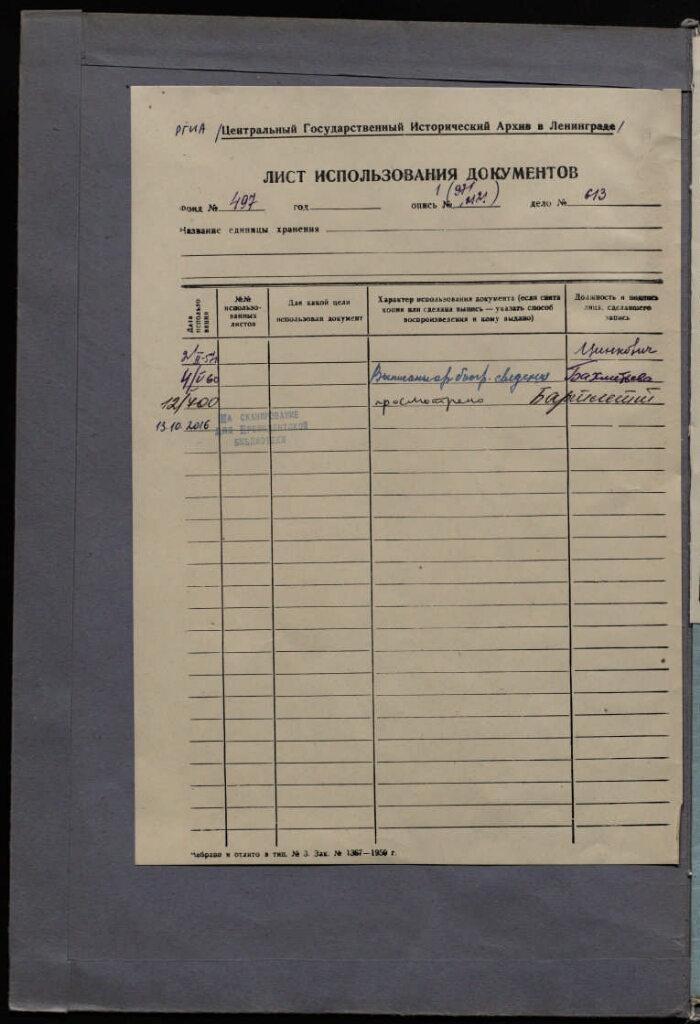 РГИА /Центральный Государственный Исторический Архив в Ленинграде/
ЛИСТ ИСПОЛЬЗОВАНИЯ ДОКУМЕНТОВ
1 (971
Фонд № 497 год опись № 2121) дело № 613
Название единицы хранения
Дата использования
№№ использо-
ванных
листов
Для какой цели
использован документ
Характер использования документа (если снята
копия или сделана выпись — указать способ
воспроизведения и кому выдано)
Должность и подпись
лица, сделавшего
запись
Цинкович
4/V 60 биогр. сведения Бахметьева
12/400 просмотрено
13.10.2016 НА СКАНИРОВАНИЕ
ДЛЯ ПРЕЗИДЕНТСКОЙ
БИБЛИОТЕКИ
Набрано и отлито в тип. № 3. Зак. № 1367—1959 г.